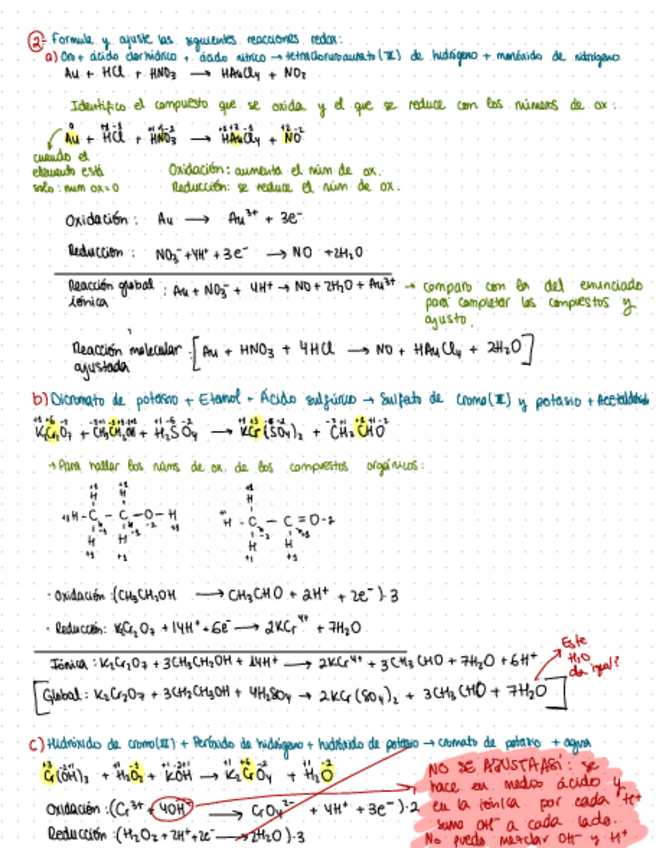 2- Formula y ajuste las siguientes reacciones redox:
a) Oro + ácido clorhídrico + ácido nítrico → tetracloruroaurato(III) de hidrógeno + monóxido de nitrógeno
Au + HCl + HNO₃ → HAuCl₄ + NO₂
Identifico el compuesto que se oxida y el que se reduce con los números de ox:
Au + HCl + HNO₃ → HAuCl₄ + NO
cuando el
elemento está
solo: num ox=0
Oxidación: aumenta el núm de ox.
Reducción: se reduce el núm de ox.
Oxidación: Au → Au³⁺ + 3e⁻
Reducción: NO₃⁻ + 4H⁺ + 3e⁻ → NO + 2H₂O
Reacción global : Au + NO₃⁻ + 4H⁺ → NO + 2H₂O + Au³⁺ → comparo con la del enunciado
iónica
para completar los compuestos y
ajusto.
Reacción molecular : [Au + HNO₃ + 4HCl → NO + HAuCl₄ + 2H₂O]
ajustada
b) Dicromato de potasio + Etanol + Ácido sulfúrico → Sulfato de cromo(III) y potasio + Acetaldehído
K₂Cr₂O₇ + CH₃CH₂OH + H₂SO₄ → KCr(SO₄)₂ + CH₃CHO
→ Para hallar los núms de ox. de los compuestos orgánicos:
H H H
H - C - C - O - H H - C - C = O -2
H H H H
· Oxidación: (CH₃CH₂OH → CH₃CHO + 2H⁺ + 2e⁻)·3
· Reducción: K₂Cr₂O₇ + 14H⁺ + 6e⁻ → 2KCr⁴⁺ + 7H₂O
Iónica: K₂Cr₂O₇ + 3CH₃CH₂OH + 14H⁺ → 2KCr⁴⁺ + 3CH₃CHO + 7H₂O + 6H⁺
Este
H₂O
da igual?
[Global: K₂Cr₂O₇ + 3CH₂CH₃OH + 4H₂SO₄ → 2KCr(SO₄)₂ + 3CH₃CHO + 7H₂O]
c) Hidróxido de cromo(III) + Peróxido de hidrógeno + hidróxido de potasio → cromato de potasio + agua
Cr(OH)₃ + H₂O₂ + KOH → K₂CrO₄ + H₂O
Oxidación: (Cr³⁺ + 4OH⁻ → CrO₄²⁻ + 4H⁺ + 3e⁻)·2
Reducción: (H₂O₂ + 2H⁺ + 2e⁻ → 2H₂O)·3
NO SE AJUSTA ASÍ: se
hace en medio ácido y
en la iónica por cada H⁺
sumo OH⁻ a cada lado.
No puedo mezclar OH⁻ y H⁺